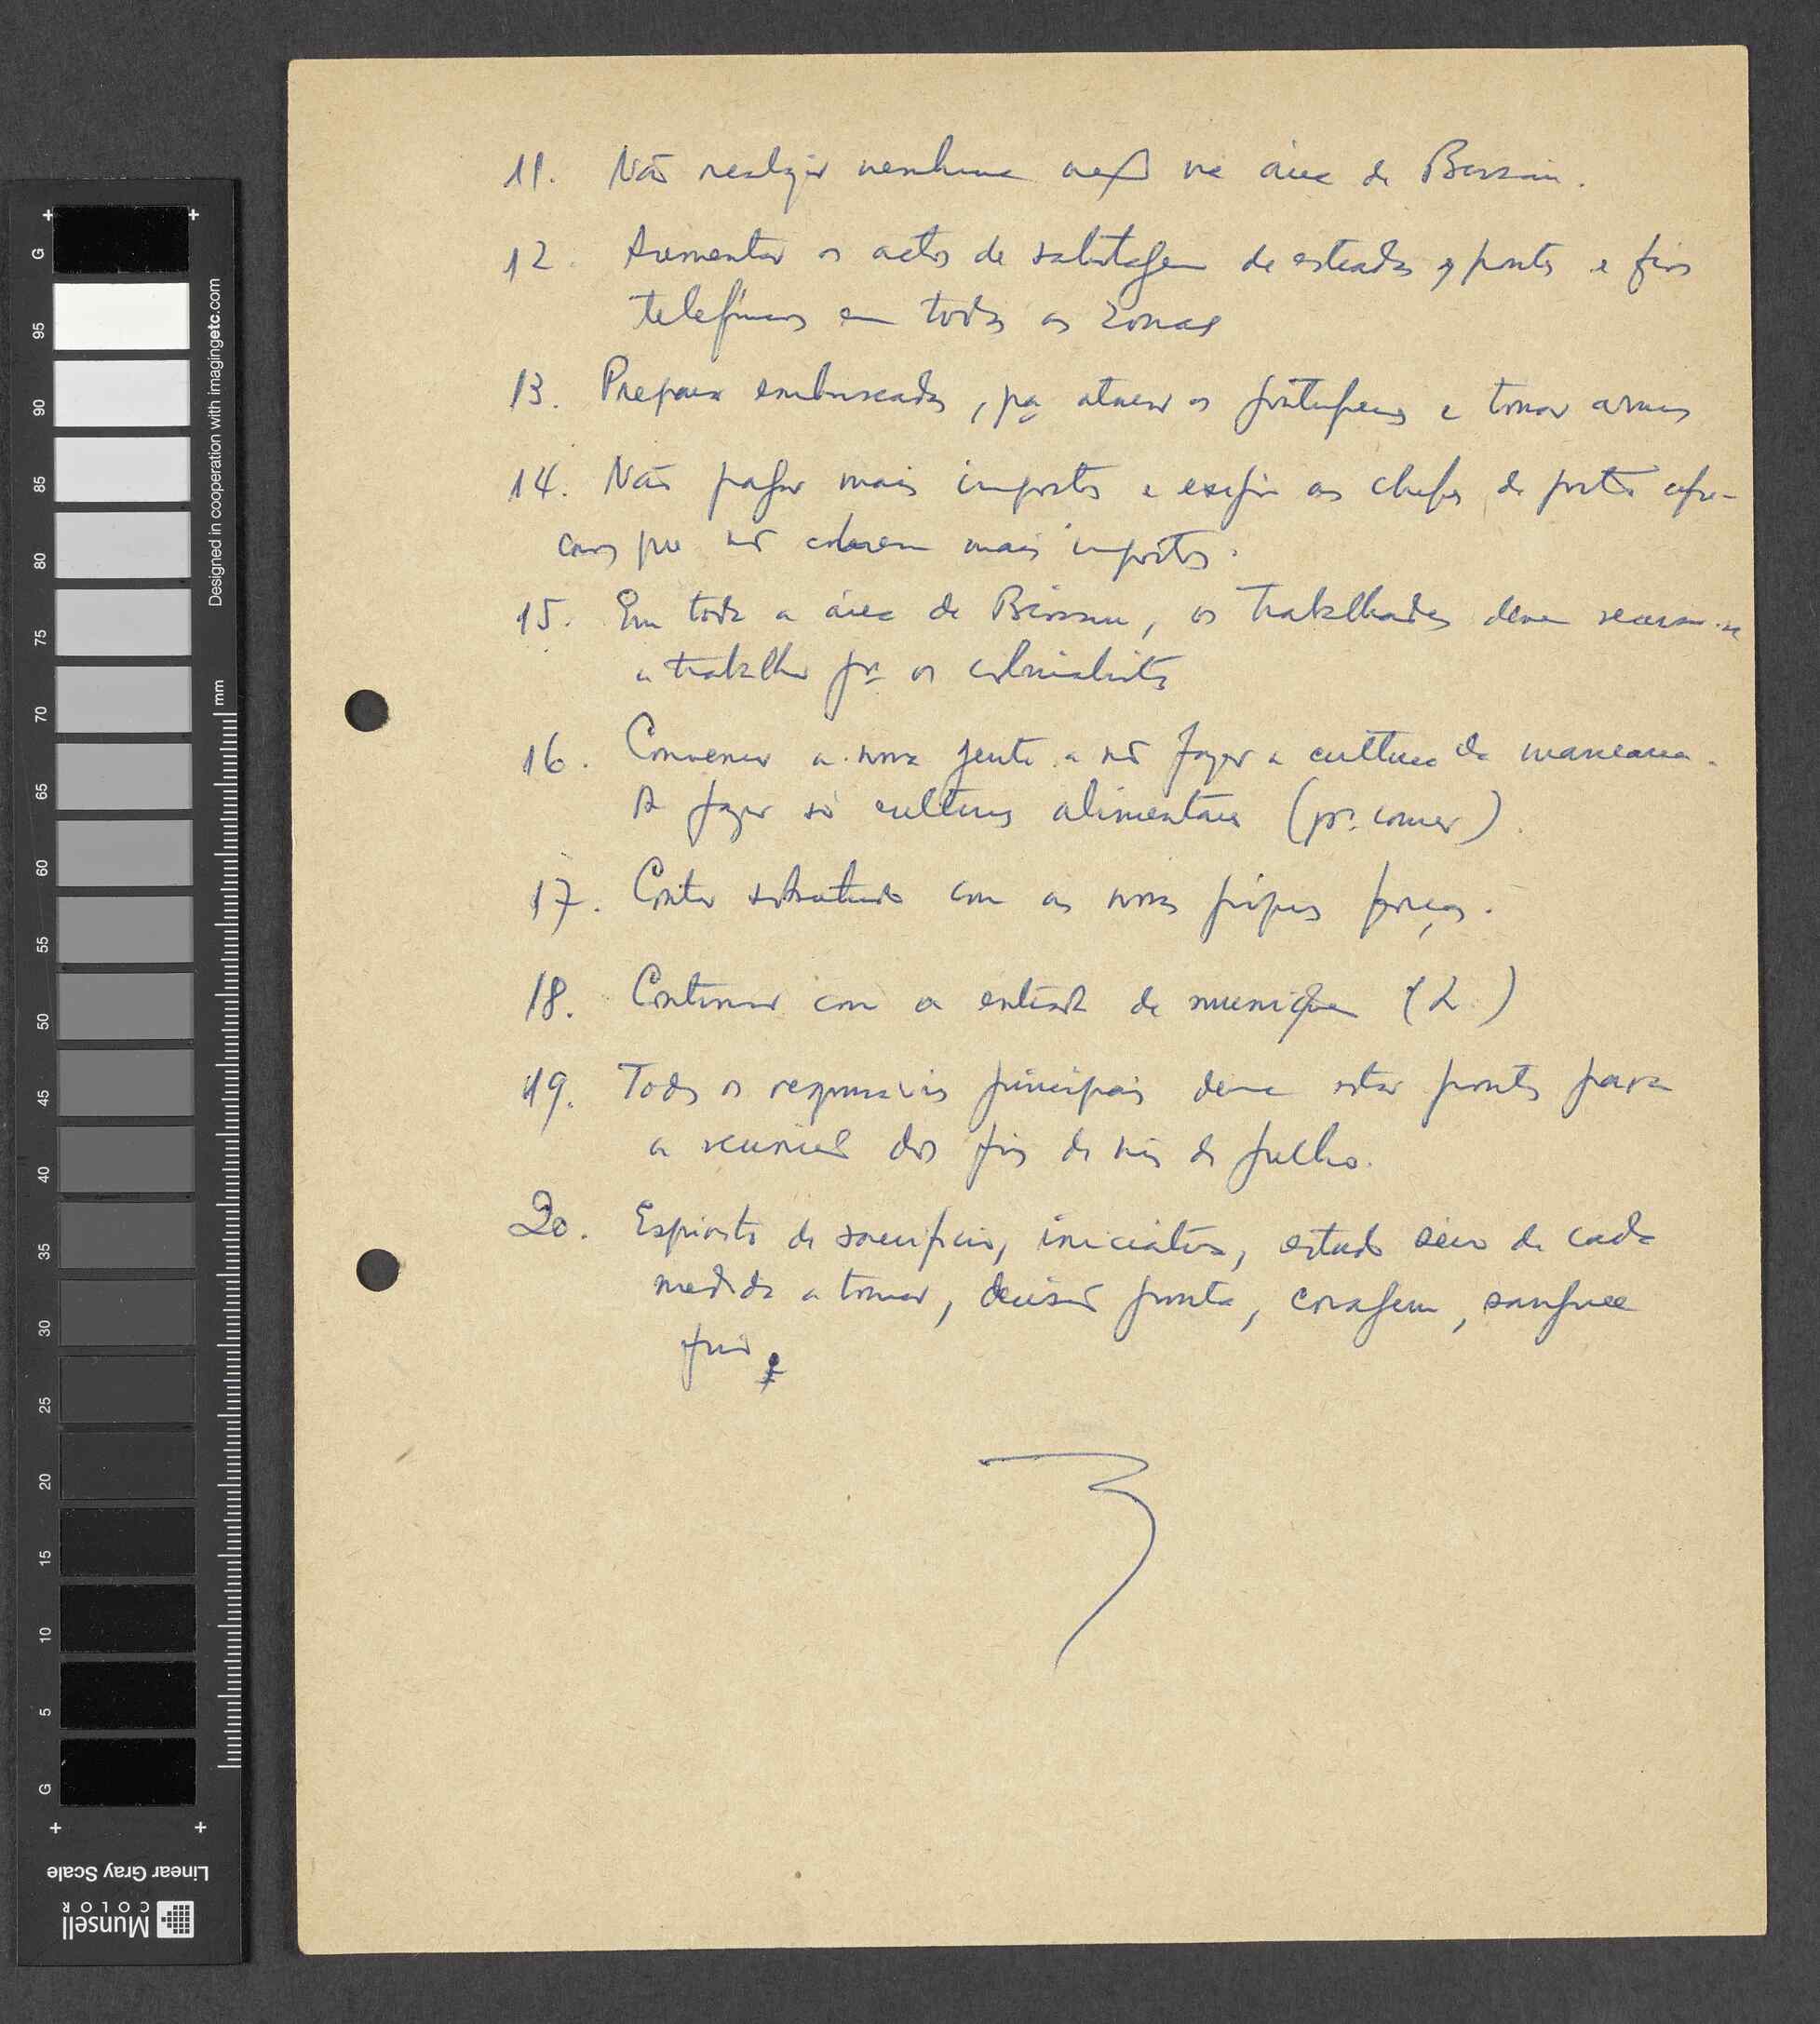 11. Não realizar nenhuma acção na área de Bissau.
12. Aumentar os actos de sabotagem de estradas, pontes e fios
telefónicos em todas as zonas
13. Preparar emboscadas, pa atacar os portugueses e tomar armas
14. Não pagar mais impostos e exigir aos chefes de posto afri-
canos que não cobrem mais impostos.
15. Em toda a área de Bissau, os trabalhadores devem recusar-se
a trabalhar pra os colonialistas
16. Convencer a nossa gente a não fazer a cultura da mancarra.
A fazer só culturas alimentares (pra comer).
17. Contar sobretudo com as nossas próprias forças.
18. Continuar com a entrada de munições (L.)
19. Todos os responsáveis principais devem estar prontos para
a reunião dos fins do mês de Julho.
20. Espírito de sacrifício, iniciativa, estudo sério de cada
medida a tomar, decisão pronta, coragem, sangue
frio
G 95 90 85 80 75 70 65 60 55 50 45 40 35 30 25 20 15 10 5 G
mm
Designed in cooperation with imagingetc.com
Linear Gray Scale
Munsell
COLOR